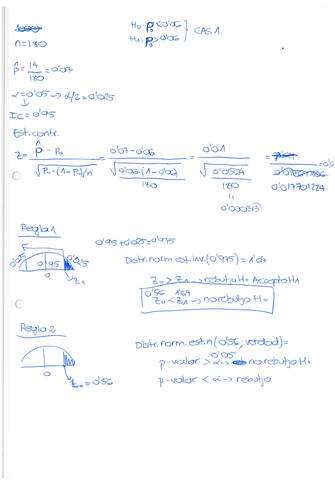 H₀: p₀ ≤ 0'06
H₁: p₀ > 0'06 } CAS 1
n=180
p̂ = 14/180 = 0'07
α=0'05 → α/2=0'025
IC=0'95
Est. contr.
Z = (p̂ - p₀)/√(p₀·(1-p₀)/n) = (0'07-0'06)/√(0'06(1-0'06)/180) = 0'01/√(0'0564/180) = 0'01/0'017701224 = 0'5
0'000313
Regla 1
0'95+0'025=0'975
0'025 0'95 0'025
0
Z₁
Distr. norm. est. inv. (0'975) = 1'64
Z₀ > Z₁ → rebutjo H₀ Accepto H₁
0'56 1'64
Z₀ < Z₁ → no rebutjo H₀
Regla 2
0
Z₀ = 0'56
Distr. norm. est. n (0'56, verdad) =
0'05
p-valor > α → no rebutjo H₀
p-valor < α → rebutjo